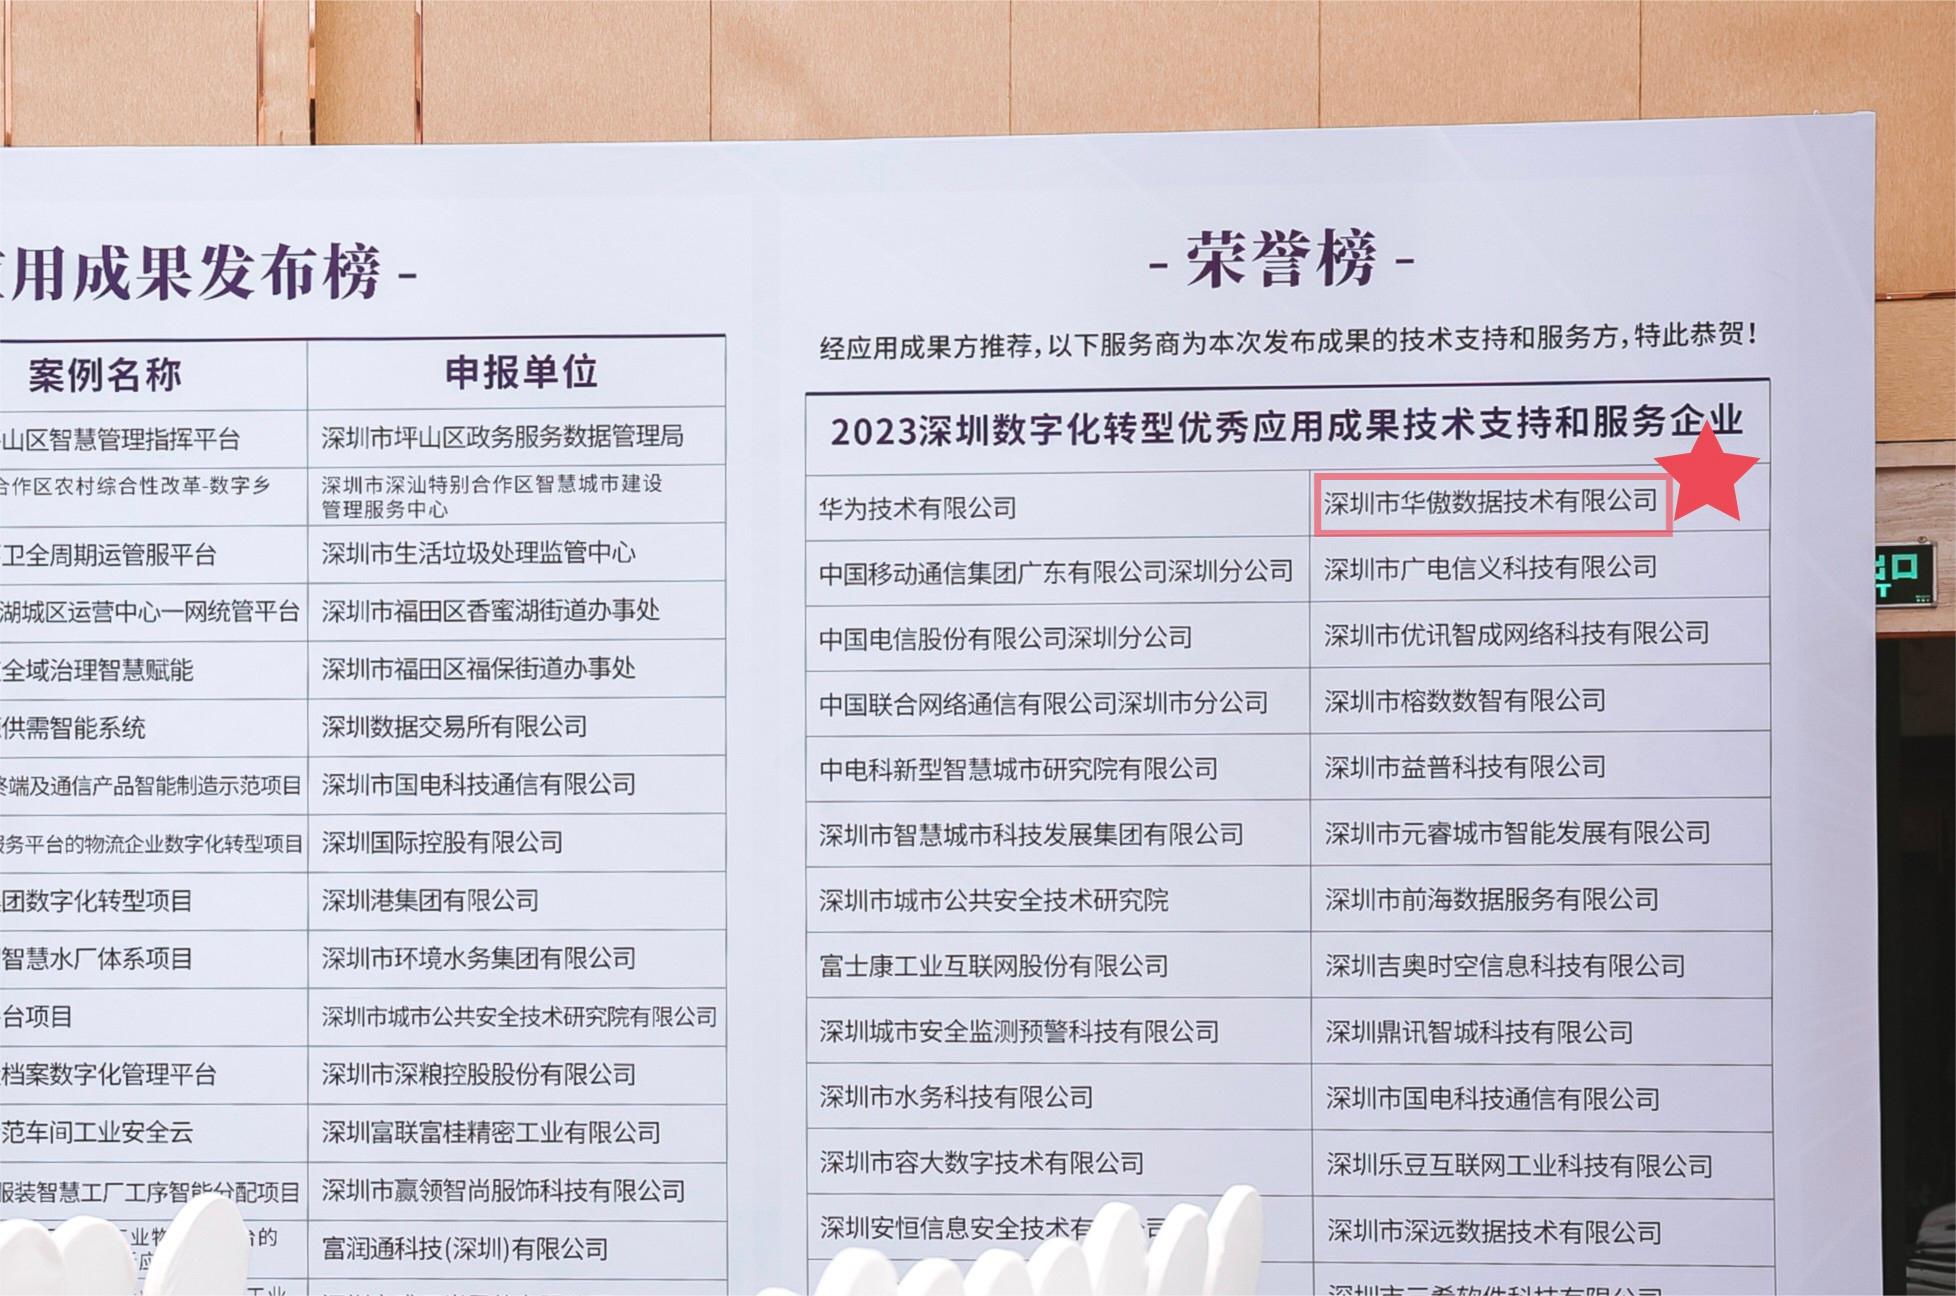 用成果发布榜 -
案例名称 申报单位
山区智慧管理指挥平台 深圳市坪山区政务服务数据管理局
合作区农村综合性改革-数字乡 深圳市深汕特别合作区智慧城市建设
管理服务中心
卫全周期运管服平台 深圳市生活垃圾处理监管中心
湖城区运营中心一网统管平台 深圳市福田区香蜜湖街道办事处
全域治理智慧赋能 深圳市福田区福保街道办事处
供需智能系统 深圳数据交易所有限公司
终端及通信产品智能制造示范项目 深圳市国电科技通信有限公司
服务平台的物流企业数字化转型项目 深圳国际控股有限公司
团数字化转型项目 深圳港集团有限公司
智慧水厂体系项目 深圳市环境水务集团有限公司
台项目 深圳市城市公共安全技术研究院有限公司
档案数字化管理平台 深圳市深粮控股股份有限公司
范车间工业安全云 深圳富联富桂精密工业有限公司
服装智慧工厂工序智能分配项目 深圳市赢领智尚服饰科技有限公司
业物 台的 富润通科技(深圳)有限公司
工业
- 荣誉榜 -
经应用成果方推荐,以下服务商为本次发布成果的技术支持和服务方,特此恭贺!
2023深圳数字化转型优秀应用成果技术支持和服务企业
华为技术有限公司 深圳市华傲数据技术有限公司
中国移动通信集团广东有限公司深圳分公司 深圳市广电信义科技有限公司
中国电信股份有限公司深圳分公司 深圳市优讯智成网络科技有限公司
中国联合网络通信有限公司深圳市分公司 深圳市榕数数智有限公司
中电科新型智慧城市研究院有限公司 深圳市益普科技有限公司
深圳市智慧城市科技发展集团有限公司 深圳市元睿城市智能发展有限公司
深圳市城市公共安全技术研究院 深圳市前海数据服务有限公司
富士康工业互联网股份有限公司 深圳吉奥时空信息科技有限公司
深圳城市安全监测预警科技有限公司 深圳鼎讯智城科技有限公司
深圳市水务科技有限公司 深圳市国电科技通信有限公司
深圳市容大数字技术有限公司 深圳乐豆互联网工业科技有限公司
深圳安恒信息安全技术有 司 深圳市深远数据技术有限公司
出口